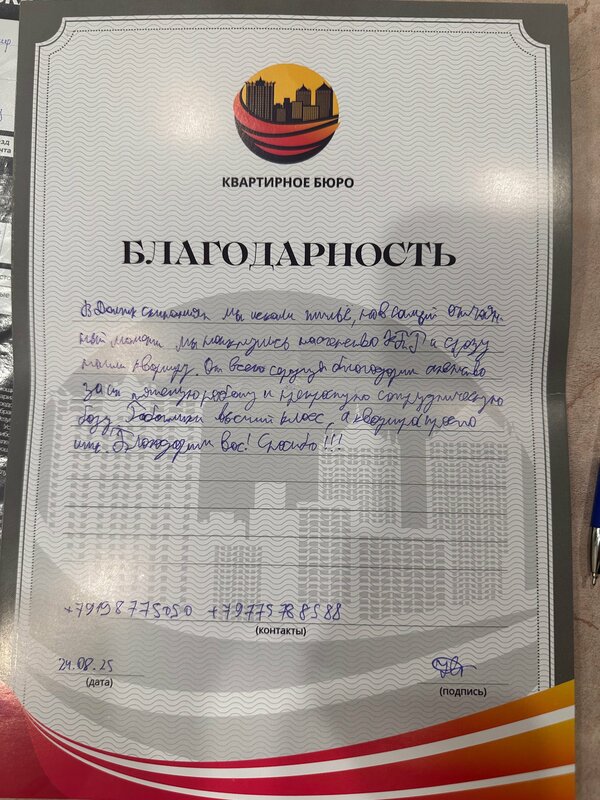 КВАРТИРНОЕ БЮРО
БЛАГОДАРНОСТЬ
В Долгих скитаниях мы искали жильё, но в самый отчаян-
ный момент мы наткнулись на агенство и сразу
нашли квартиру. От всего сердца благодарим агенство
за работу и прекрасную сотрудническую
базу. Работники высший класс, а квартира просто
Благодарим вас! Спасибо!!!
+79198775050 +79775788588
(контакты)
24.08.25
(дата)
(подпись)